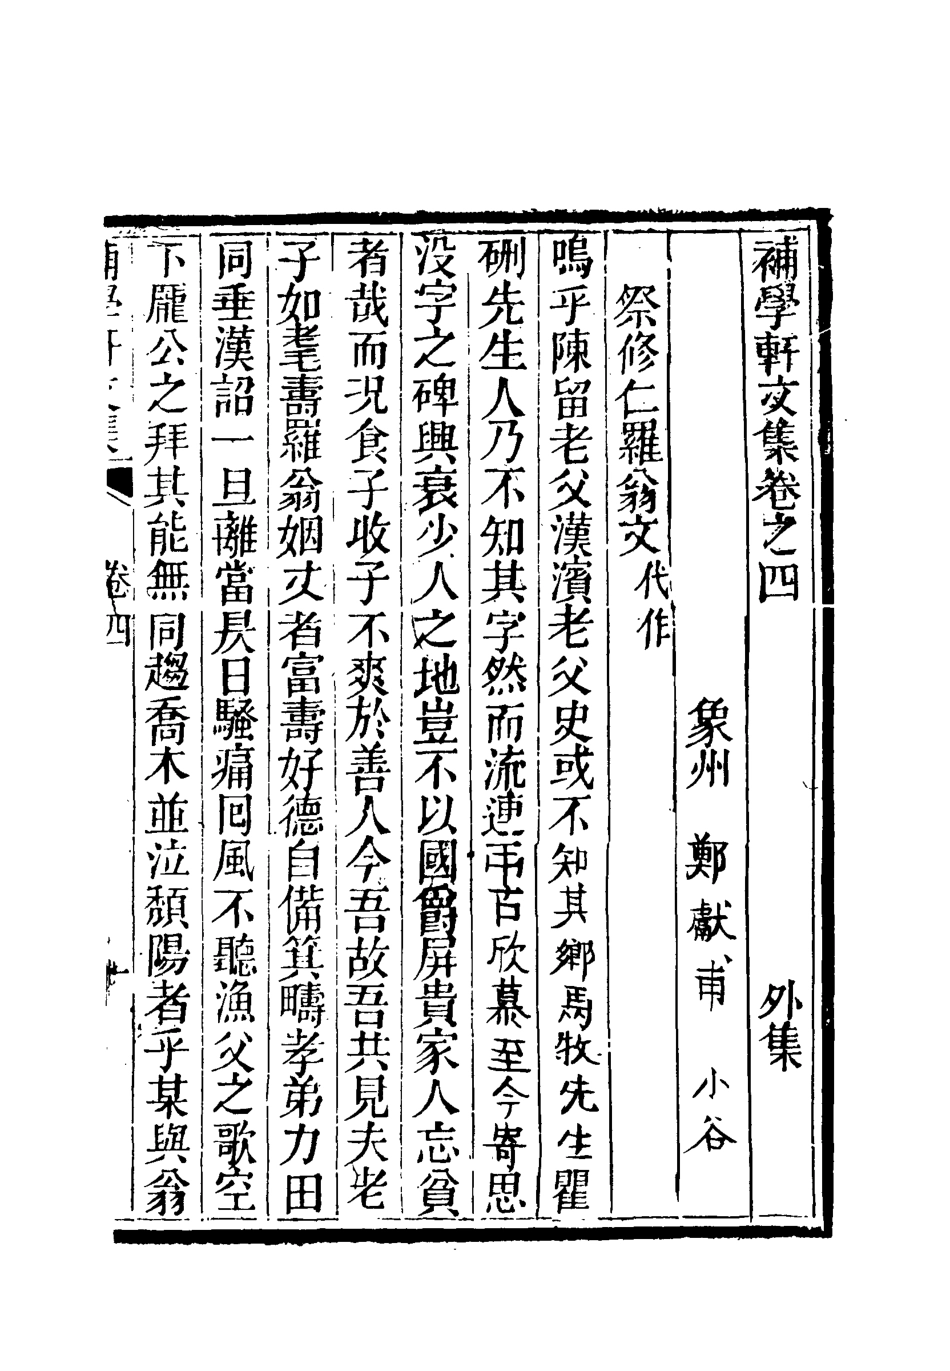 補學軒文集卷之四　外集
象州　鄭獻甫　小谷
祭修仁羅翁文代作
嗚乎陳留老父漢濱老父史或不知其鄉馬牧先生瞿
硎先生人乃不知其字然而流連弔古欣慕至今寄思
没字之碑興衰少人之地豈不以國爵屏貴家人忘貧
者哉而况食子收子不爽於善人今吾故吾共見夫老
子如耄壽羅翁姻丈者富壽好德自備箕疇孝弟力田
同垂漢詔一旦離當長日騷痛囘風不聽漁父之歌空
下龐公之拜其能無同趨喬木並泣頹陽者乎某與翁
補學軒文集　卷四